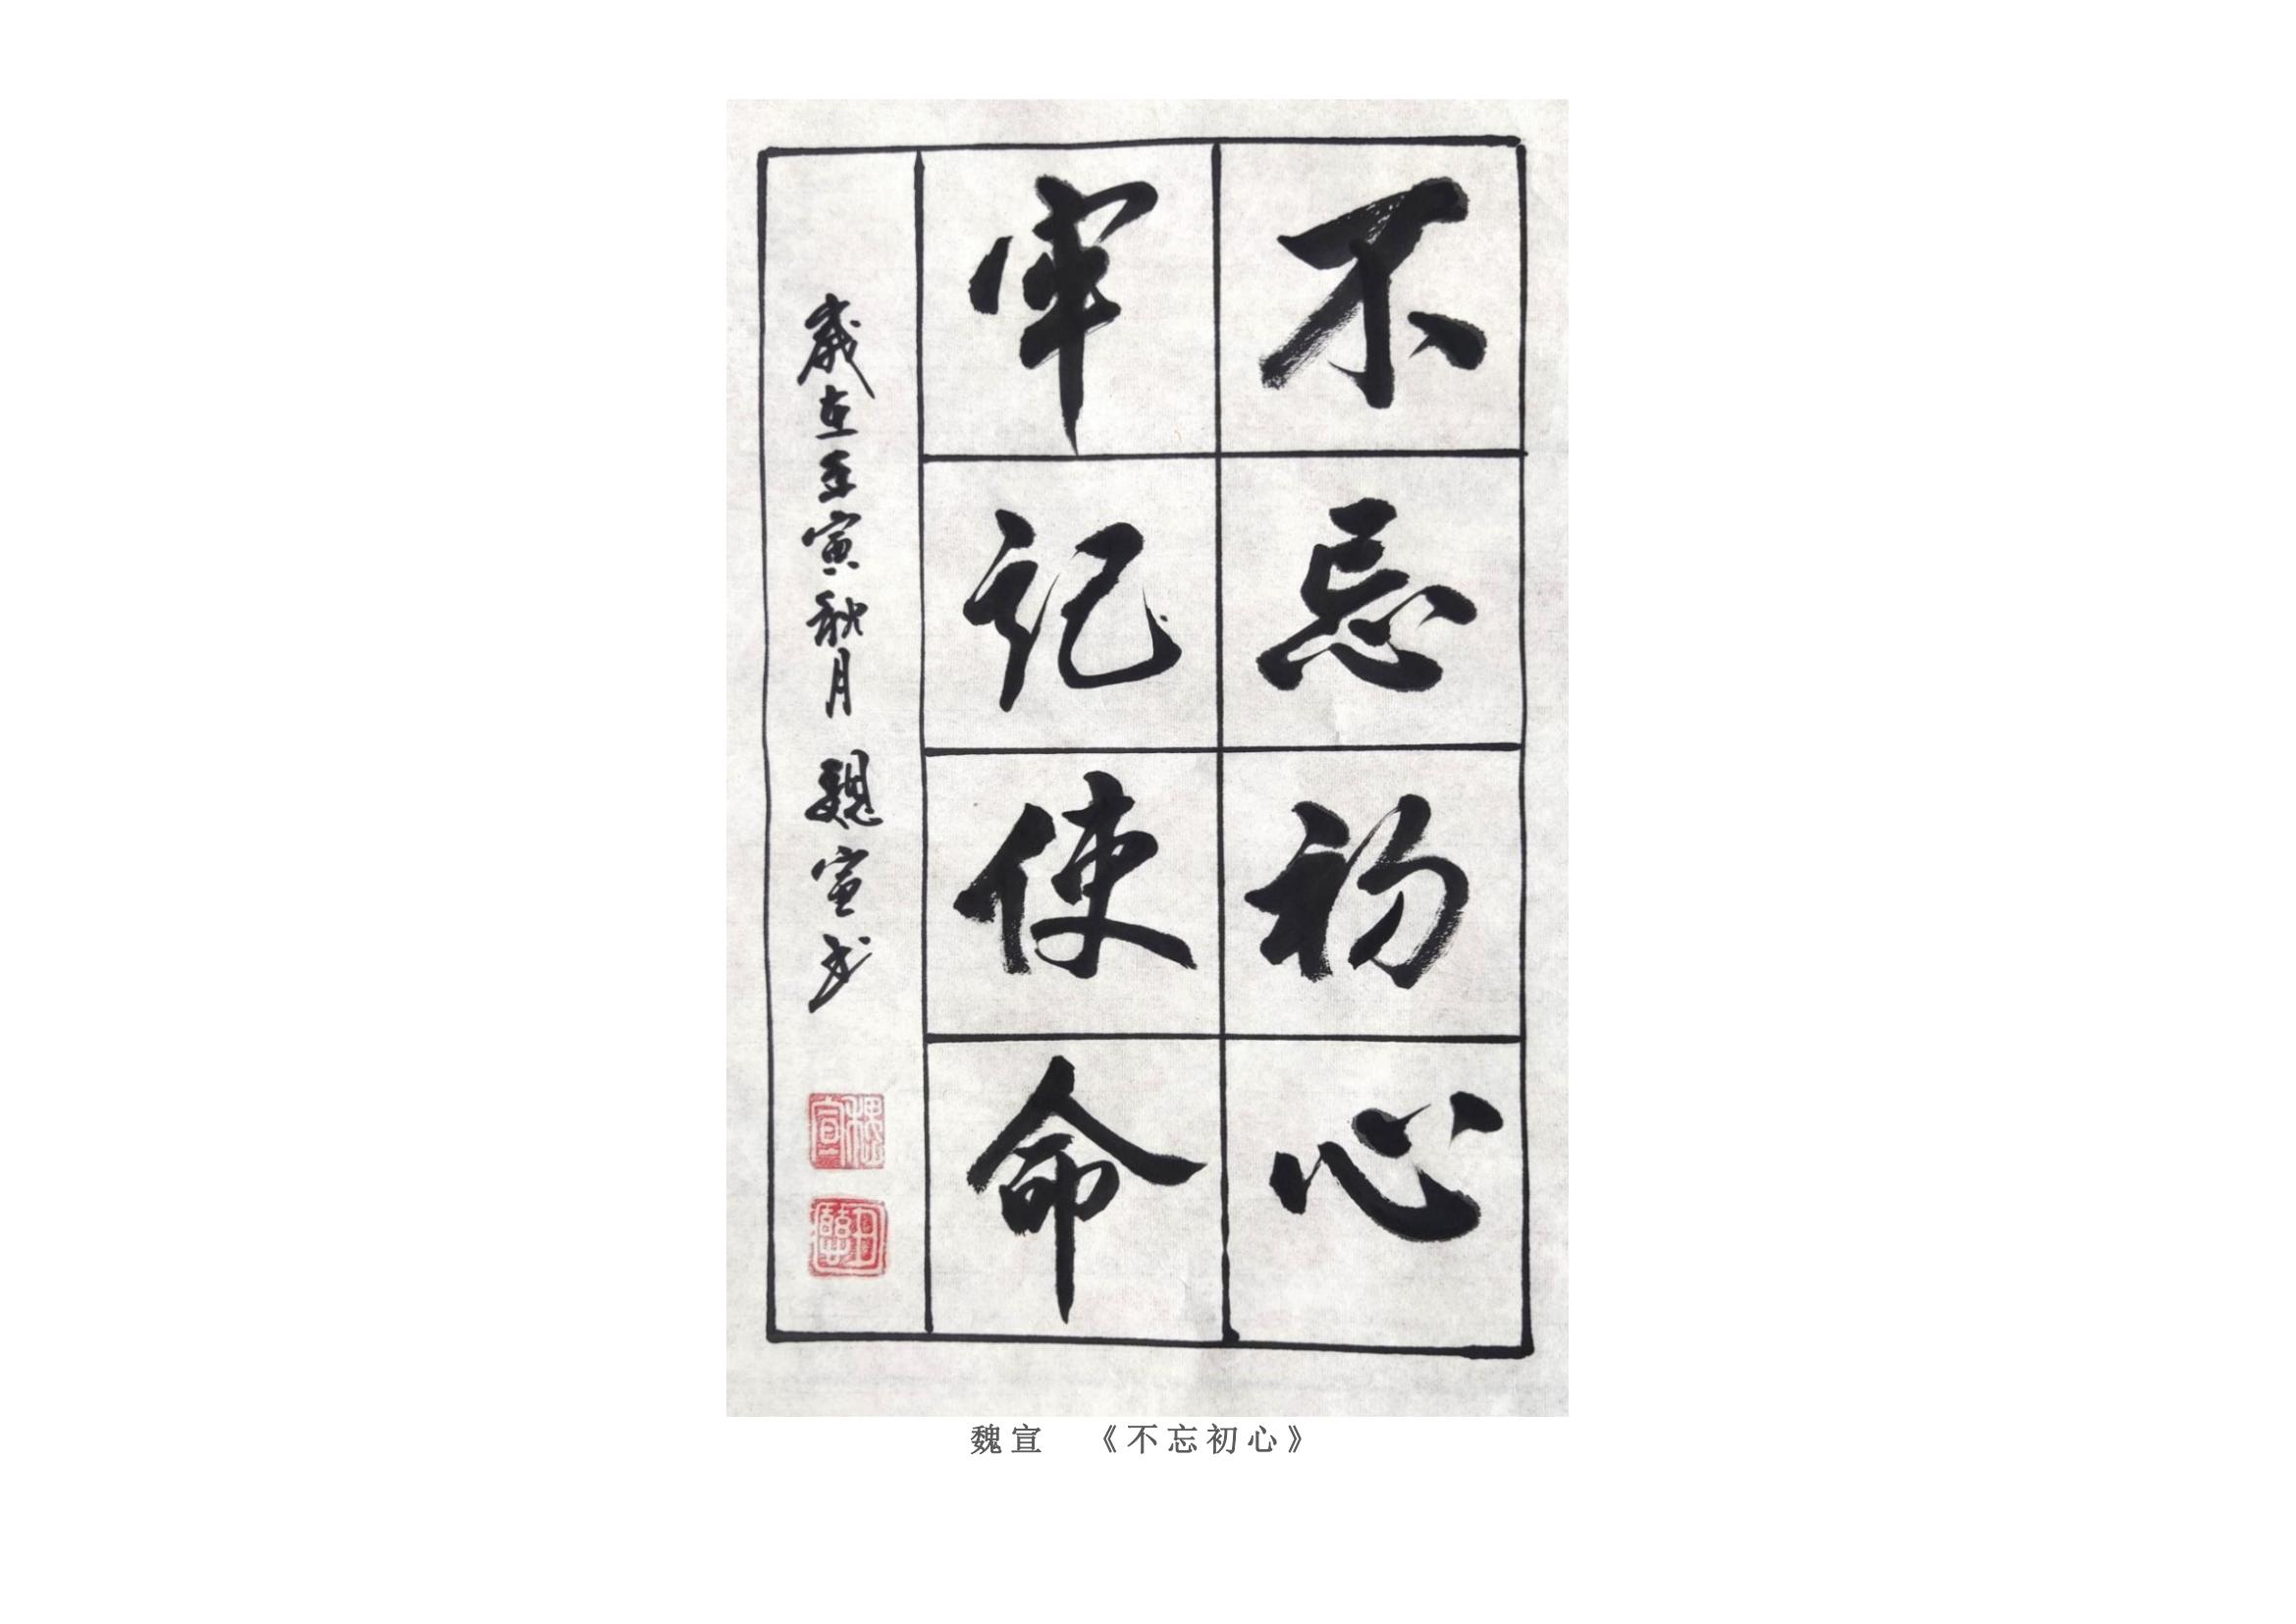 不忘初心
牢记使命
歲在壬寅秋月 魏宣书
魏宣
魏宣 《不忘初心》